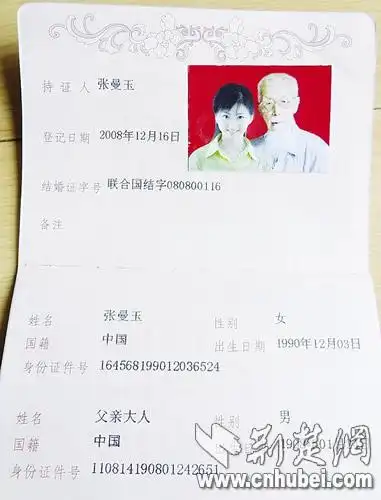 持证人 张曼玉
登记日期 2008年12月16日
结婚证字号 联合国结字080800116
备注
姓名 张曼玉 性别 女
国籍 中国 出生日期 1990年12月03日
身份证件号 164568199012036524
姓名 父亲大人 性别 男
国籍 中国
身份证件号 110814190801242651
荆楚网
www.cnhubei.com